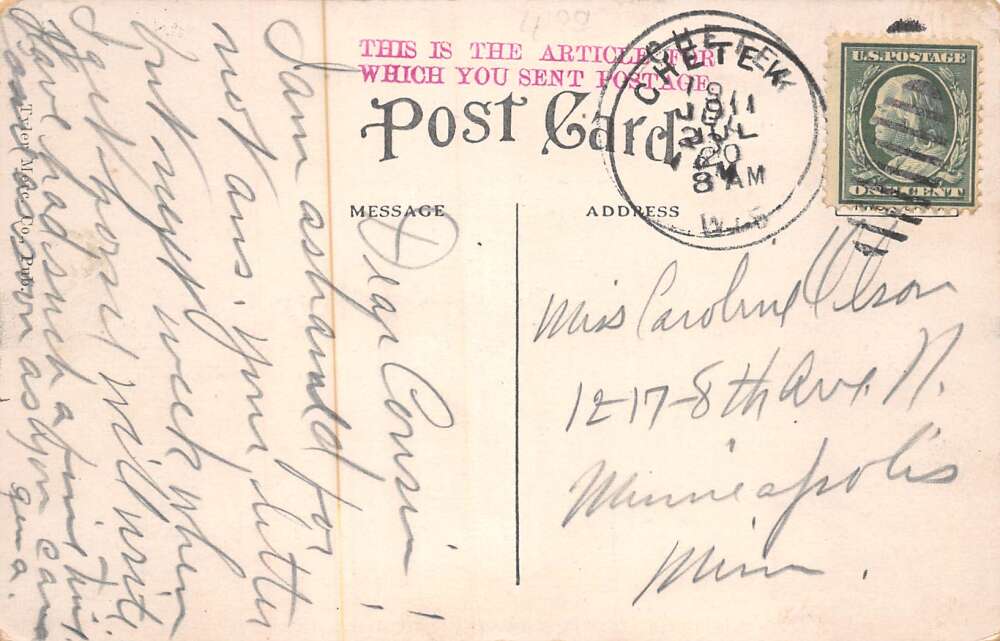 4.00
THIS IS THE ARTICLE FOR
WHICH YOU SENT POSTAGE.
Post Card
CHETEK
JUL
20
8 AM
WIS
U.S. POSTAGE
ONE CENT
MESSAGE
ADDRESS
Miss Caroline Olson
1217-8th Ave. N.
Minneapolis
Minn.
Dear Cousin!
I am ashamed for
not ans. your letter
but next week when
I get home I will write.
Have had such a fine time.
ans soon as you can
Tyler Mdse. Co., Pub.